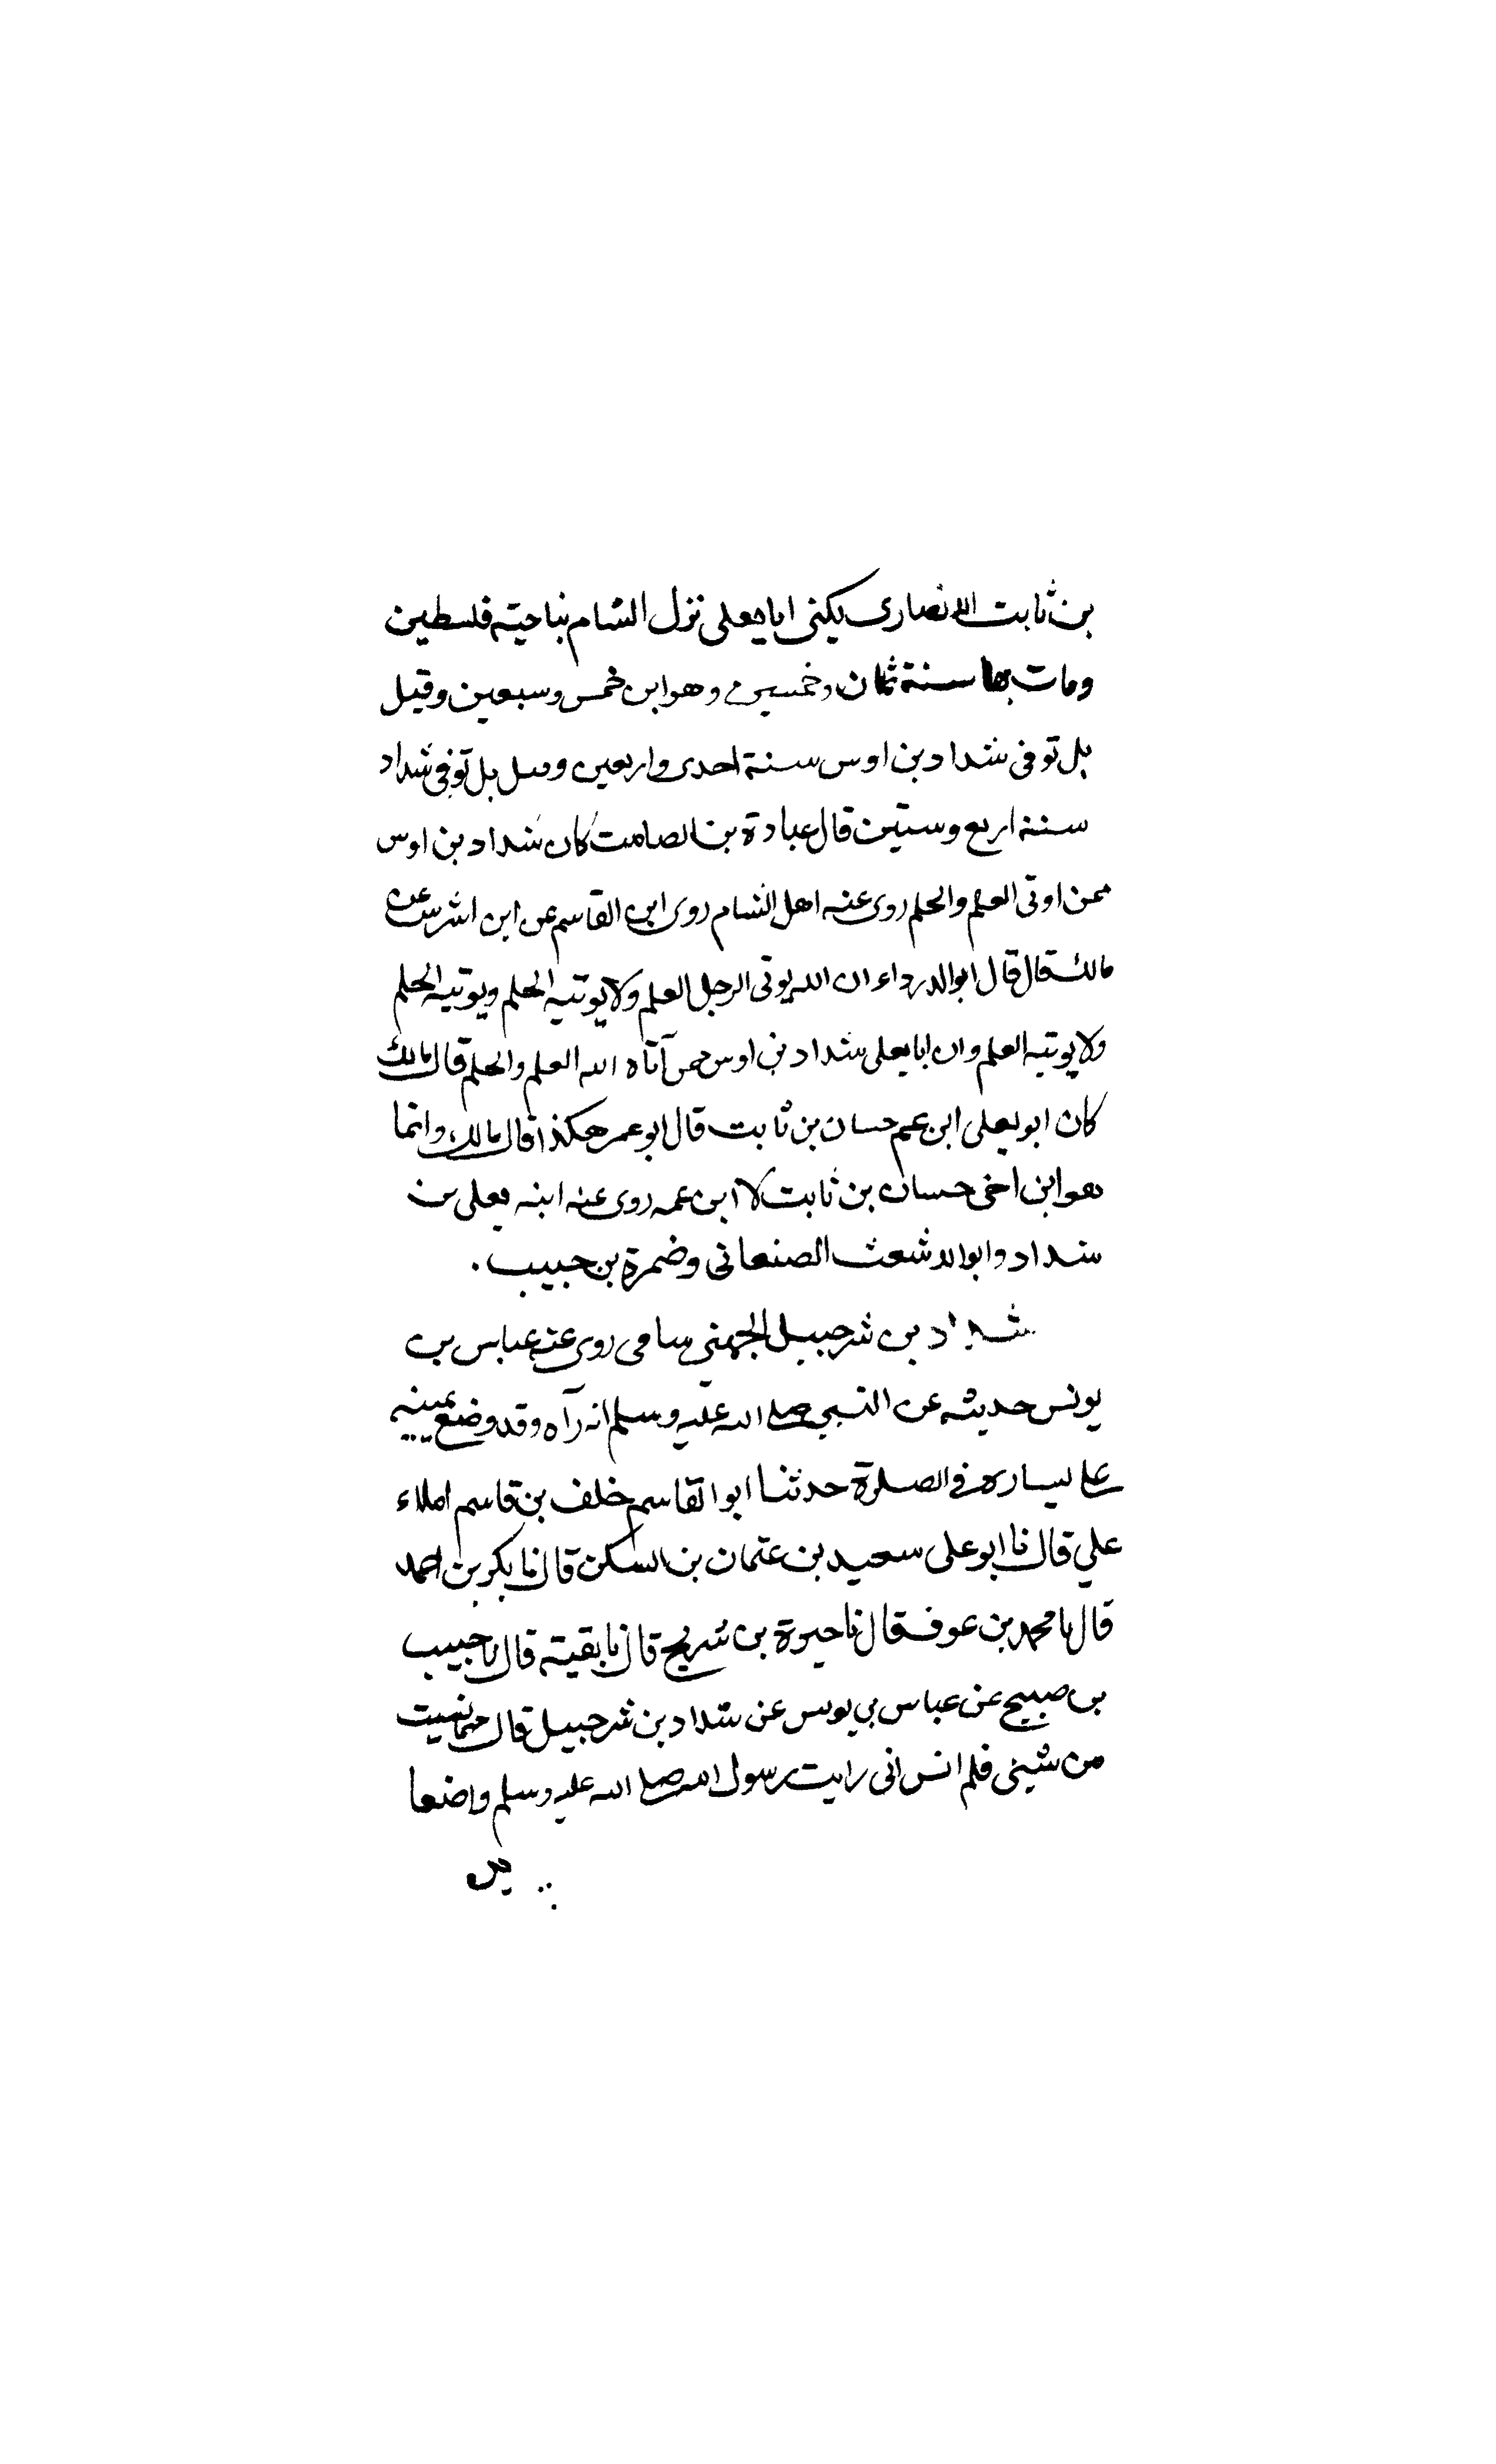 بن ثابت الانصارى يكنى ابا يعلى نزل الشام بناحية فلسطين
ومات بها سنة ثمان وخمسين وهو ابن خمس وسبعين وقيل
بل توفى شداد بن اوس سنة احدى واربعين وقيل بل توفى شداد
سنة اربع وستين قال عبادة بن الصامت كان شداد بن اوس
ممن اوتى العلم والحلم روى عنه اهل الشام روى ابن القاسم عن ابن اشرس عن
مالك قال قال ابو الدرداء ان الله يوتى الرجل العلم ولا يوتيه الحلم ويوتيه الحلم
ولا يوتيه العلم وان ابا يعلى شداد بن اوس ممن آتاه الله العلم والحلم قال مالك
كان ابو يعلى ابن عم حسان بن ثابت قال ابو عمر هكذا قال مالك وانما
هو ابن اخى حسان بن ثابت لا ابن عمه روى عنه ابنه يعلى بن
شداد وابو الاشعث الصنعانى وضمرة بن حبيب .
شداد بن شرحبيل الجهنى شامى روى عنه عباس بن
يونس حديثه عن النبى صلى الله عليه وسلم انه رآه وقد وضع يمينه
على يساره فى الصلوة حدثنا ابو القاسم خلف بن قاسم املاء
علي قال نا ابو على سعيد بن عثمان بن السكن قال نا بكر بن احمد
قال نا محمد بن عوف قال نا حيوة بن شريح قال نا بقية قال نا حبيب
بن صبيح عن عباس بن يونس عن شداد بن شرحبيل قال مهما نسيت
من شيئى فلم انس انى رايت رسول الله صلى الله عليه وسلم واضعا